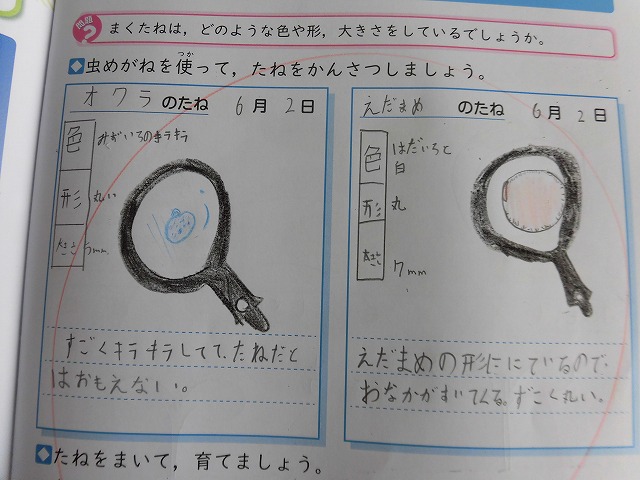 問題?
まくたねは，どのような色や形，大きさをしているでしょうか。
虫めがねを使って，たねをかんさつしましょう。
つか
オクラ のたね 6月 2日
色 みずいろのキラキラ
形 丸い
大きさ 5mm
すごくキラキラしてて、たねだと
はおもえない。
えだまめ のたね 6月 2日
色 はだいろと
白
形 丸
大きさ 7mm
えだまめの形ににているので、
おなかがすいてくる。すごく丸い。
たねをまいて，育てましょう。